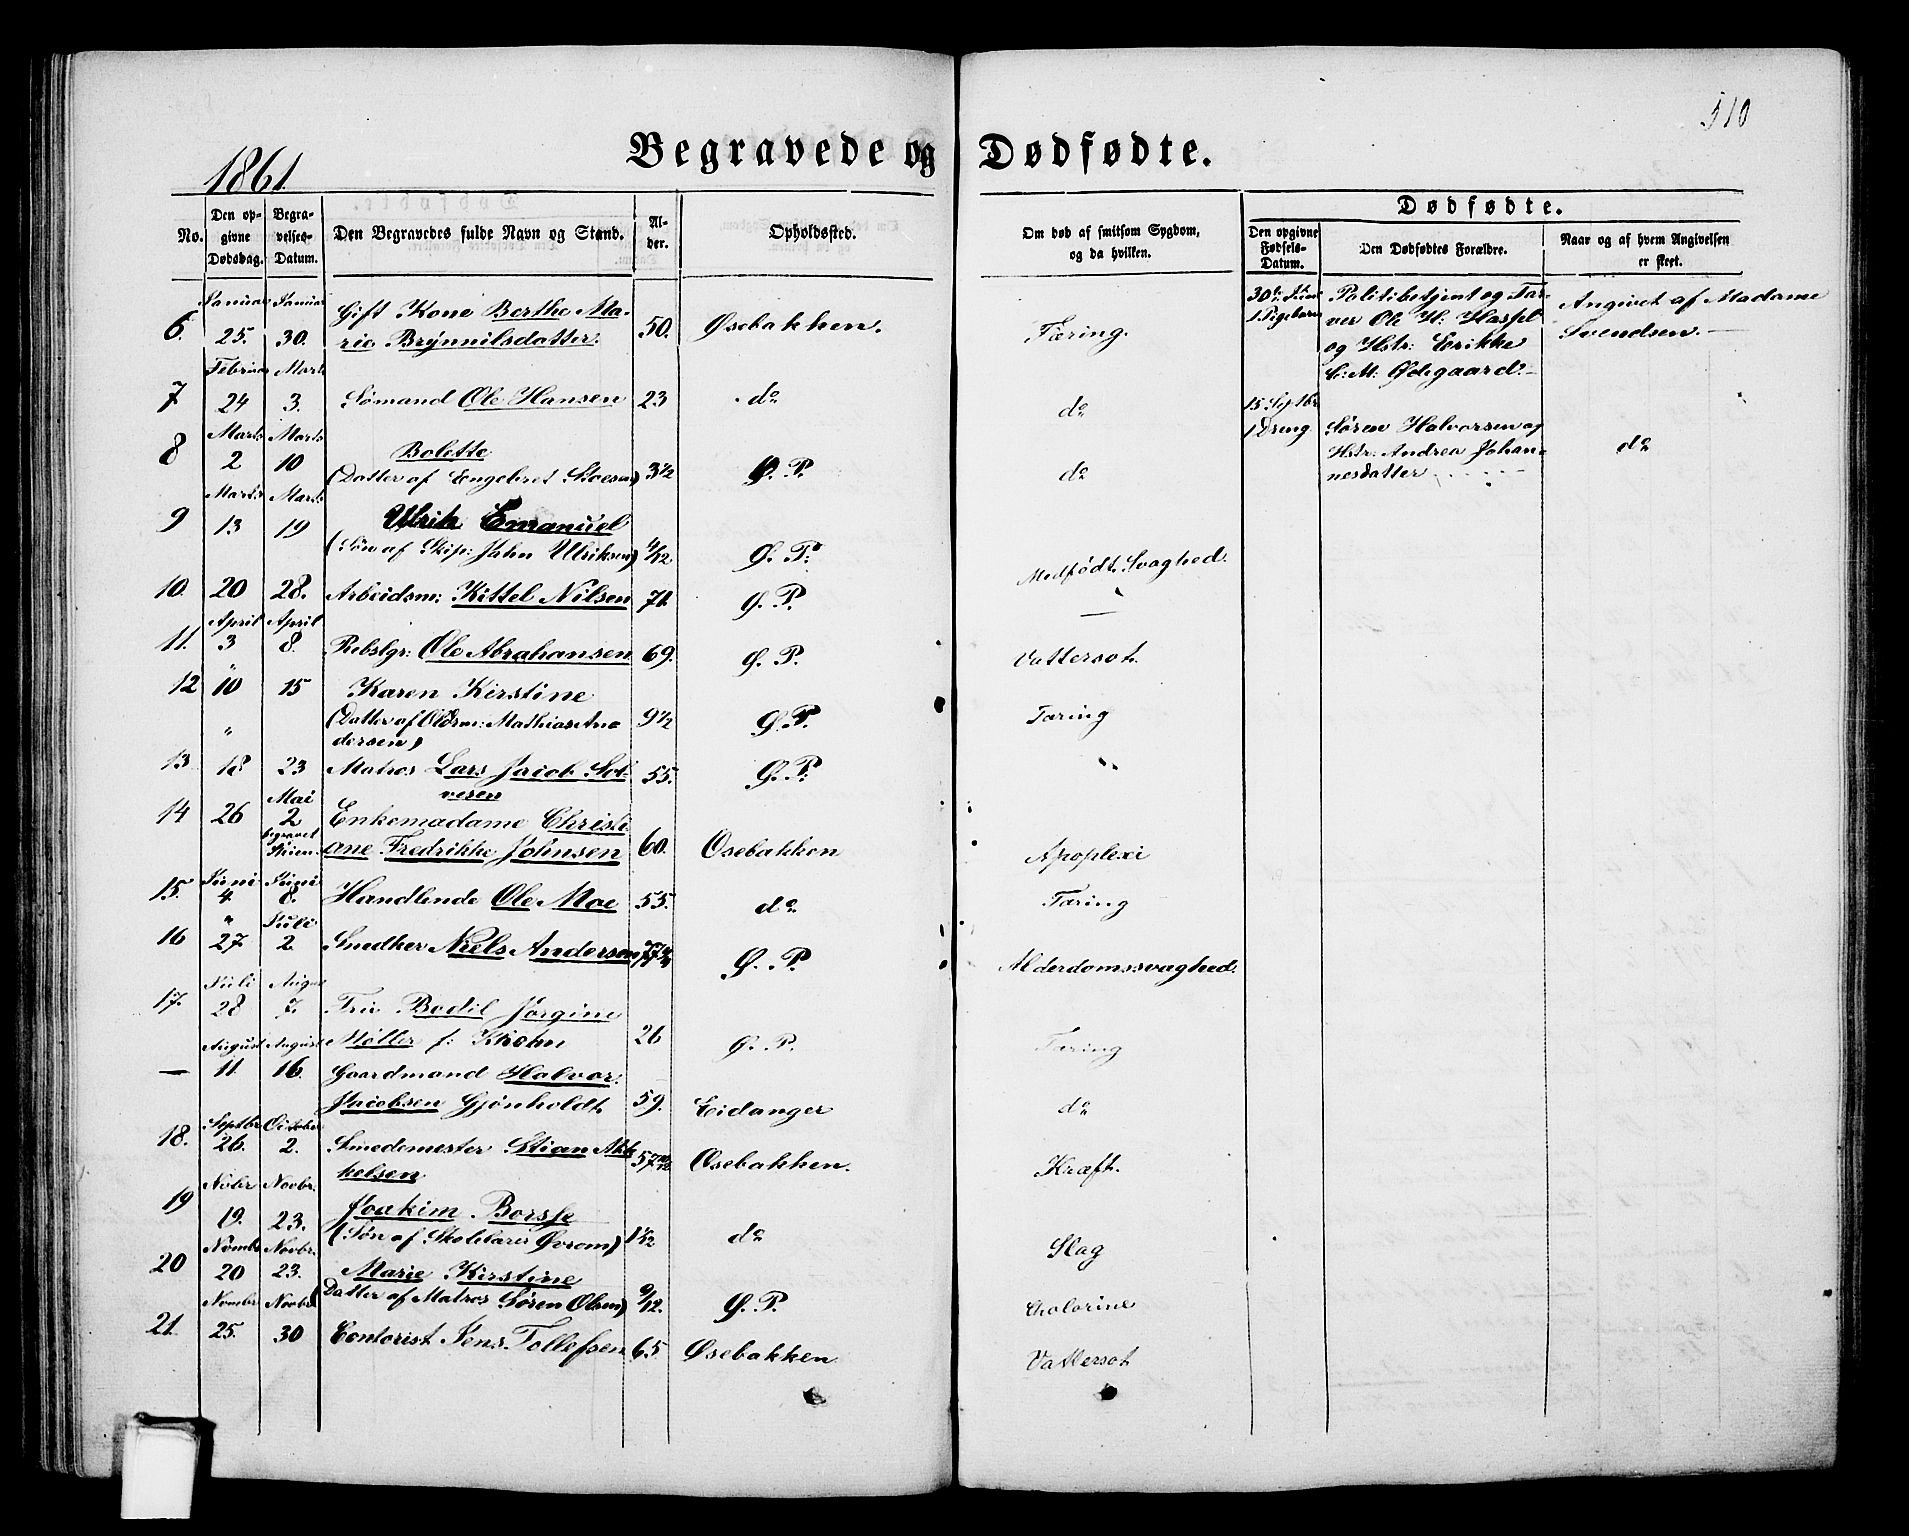 510
1861
Begravede og Dødfødte.
No.
Den opgivne Dødsdag.
Begravelses-Datum.
Den Begravedes fulde Navn og Stand.
Alder.
Opholdssted.
Om død af smitsom Sygdom, og da hvilken.
Dødfødte.
Den opgivne Fødsels-Datum.
Den Dødfødtes Forældre.
Naar og af hvem Angivelsen er skeet.
6. Januar 25. Januar 30. Gift Kone Berthe Ma-
rie Brynnilsdatter. 50. Øsebakken. Tæring.
7 Februar 24 Marts 3. Sømand Ole Hansen 23 do do
8 Marts 2 Marts 10 Bolette
(Datter af Engebret 3½ Ø. P. do
9 Marts 13 Marts 19 Ulrik Emanuel
(Søn af Skip: Jahn Ulriksen) 4/12 Ø. P: Medfødt Svaghed.
10. 20 28. Arbeidsm: Kittel Nilsen 71. Ø. P. —
11. April 3 April 8. Rebslgr: Ole Abrahansen 69. Ø. P. Vattersot.
12 " 10 15 Karen Kirstine
(Datter af Oldrm: Mathias An-
dersen) 9½ Ø. P. Tæring
13. " 18 23 Matros Lars Jacob Sol-
vesen 55. Ø. P. "
14 26 Mai 2 begravet Skien. Enkemadame Christi-
ane Fredrikke Johnsen 60. Osebakken Apoplexi
15. Juni 4. Juni 8. Handlende Ole Moe 55. do Tæring
16 " 27. Juli 2 Snedker Niels Andersen Ø. P. Alderdomssvaghed.
17. Juli 28 August 7. Fru Bodil Jørgine
Møller f: Krohn 26 Ø. P. Tæring
— August 11. August 16. Gaardmand Halvor
Jacobsen Gjönholdt 59. Eidanger do
18. Septbr 26. October 2. Smedemester Stian Mik-
kelsen 57 10/12 Øsebakken. Kræft.
19 Novbr 19. Novbr. 23. Joakim Borsse
(Søn af Skolelærer Øvrom) do Slag
20 Novmbr 20 Novbr. 23. Marie Kirstine
(Datter af Matros Søren Olsen) 9/12. Ø. P. Cholorine
21. Novmbr 25. Novbr 30 Contorist Jens Tollefsen 65 Øsebakken Vattersot
30te Juni
1 Pigebarn
Politibetjent og Far-
ver Ole H: Hasfel
og Hstr: Erikke
C: M: Ødegaard.—
Angivet af Madame
Svendsen.—
15 Septbr
1 Dreng
Søren Halvorsen og
Hstr: Andrea Johan-
nesdatter
do